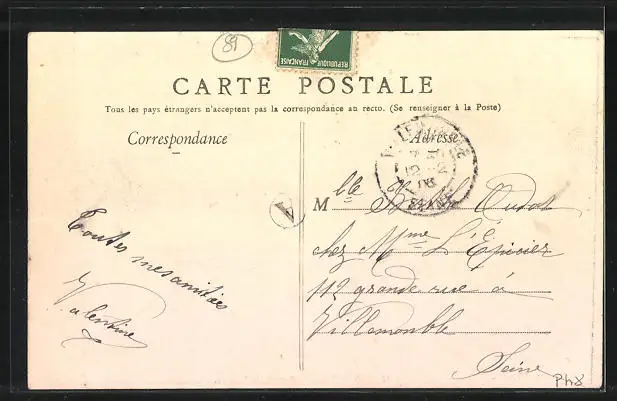 89
REPUBLIQUE FRANÇAISE
CARTE POSTALE
Tous les pays étrangers n'acceptent pas la correspondance au recto. (Se renseigner à la Poste)
Correspondance
Adresse
A
Mlle Oudot
chez Mme L'Épicier
112 grande rue à
Villemomble
Seine
Toutes mes amitiés
Valentine
SEINE
08